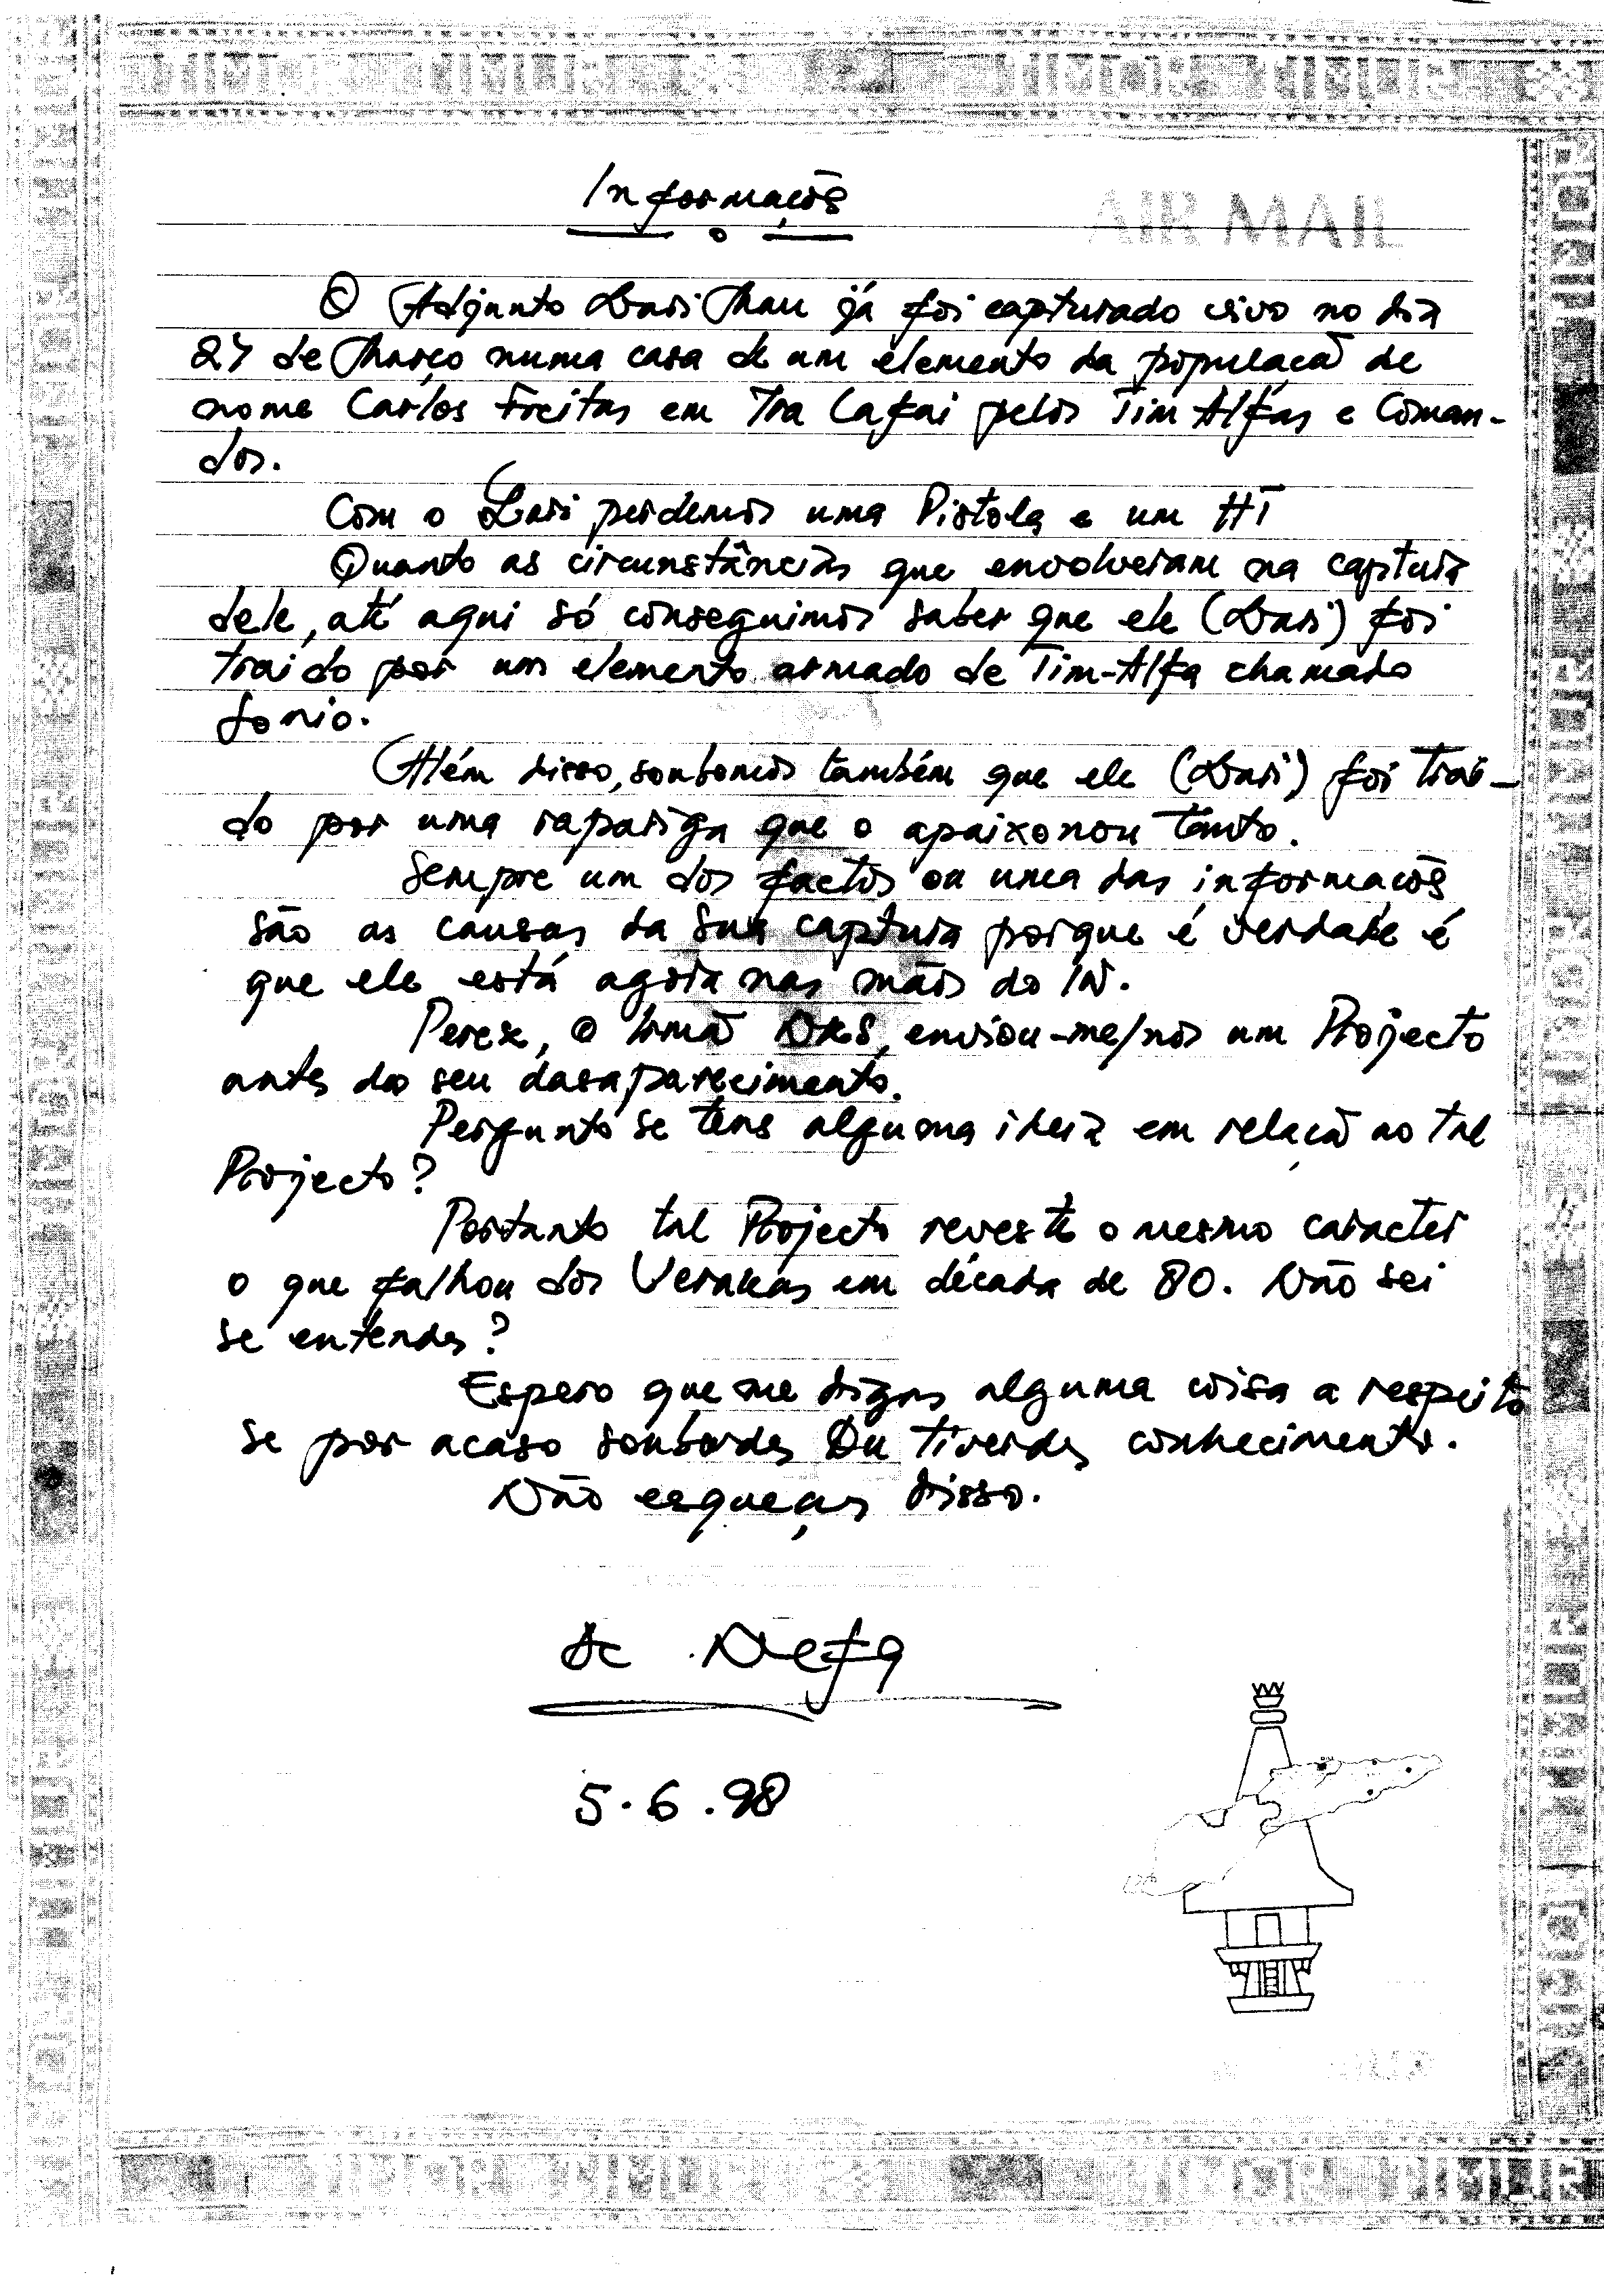 TIMOR TIMUR TIMOR TIMUR
AIR MAIL
Informações
O Adjunto Lari Mau já foi capturado vivo no dia
27 de Março numa casa de um elemento da populacã de
nome Carlos Freitas em Tra Lafai pelos Tim Alfas e Coman-
dos.
Com o Lari perdemos uma Pistola e um HT
Quanto as circunstâncias que envolveram na captura
dele, até aqui só conseguimos saber que ele (Lari) foi
traido por um elemento armado de Tim-Alfa chamado
Além disso, soubemos também que ele (Lari) foi trai-
do por uma rapariga que o apaixonou tanto.
Sempre um dos factos ou uma das informacõs
são as causas da sua captura porque é verdade é
que ele está agora nas mãos do IN.
Perex, o Irmã DKS, enviou-me/nos um Projecto
antes do seu dasaparecimento.
Pergunto se tens alguma ideia em relacã ao tal
Projecto?
Portanto tal Projecto reveste o mesmo caracter
o que falhou dos Verakas em década de 80. Não sei
se entendes?
Espero que me digas alguma coisa a respeito
se por acaso souberdes Ou tiverdes conhecimento.
Não esqueças disso.
Nefq
5.6.98
TIMOR TIMUR TIMOR TIMUR